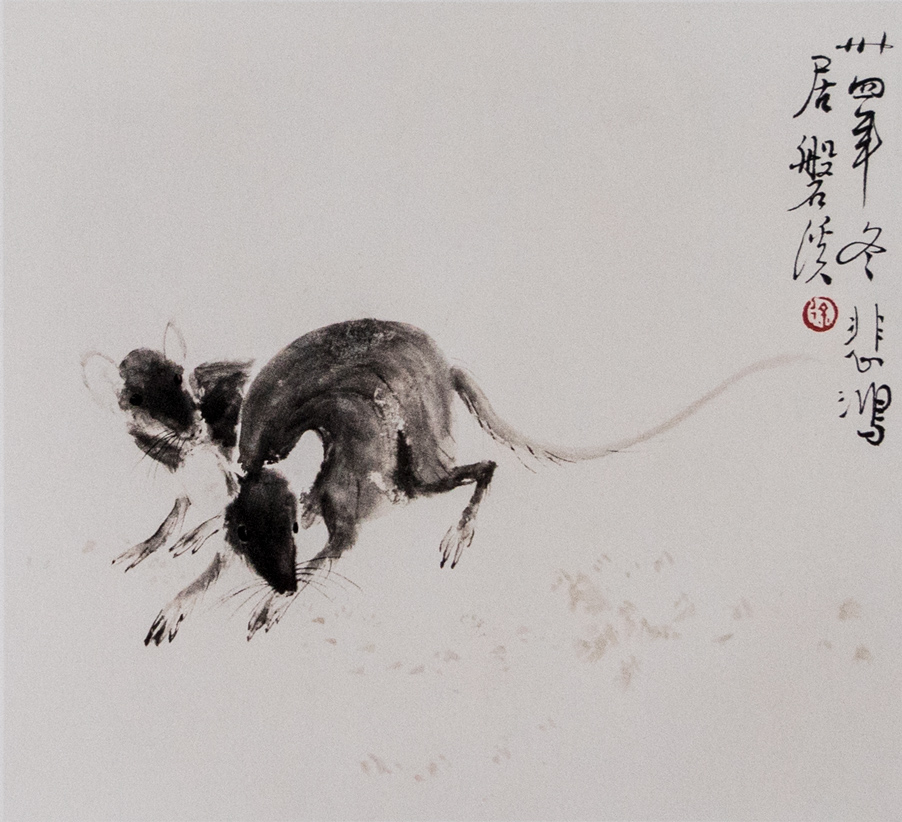 卅四年冬悲鴻
居磐溪
徐